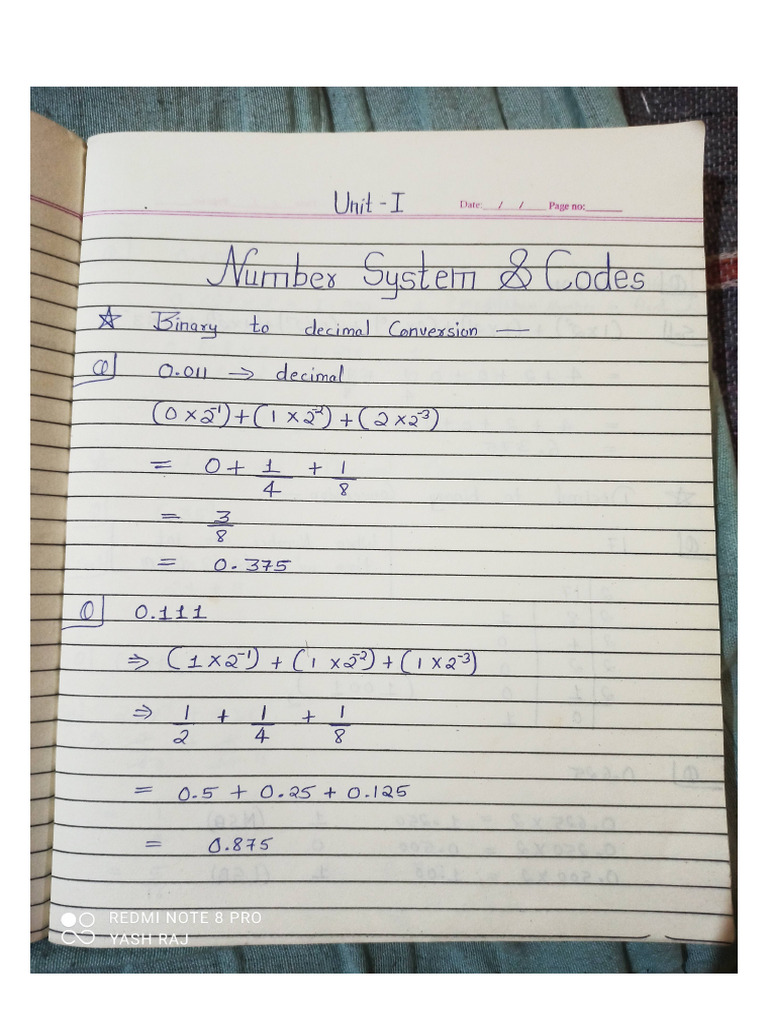 Unit - I
Date: / / Page no:
Number System & Codes
☆ Binary to decimal Conversion —
Q 0.011 → decimal
(0 × 2⁻¹) + (1 × 2⁻²) + (2 × 2⁻³)
= 0 + 1/4 + 1/8
= 3/8
= 0.375
Q 0.111
⇒ (1 × 2⁻¹) + (1 × 2⁻²) + (1 × 2⁻³)
⇒ 1/2 + 1/4 + 1/8
= 0.5 + 0.25 + 0.125
= 0.875
REDMI NOTE 8 PRO
YASH RAJ